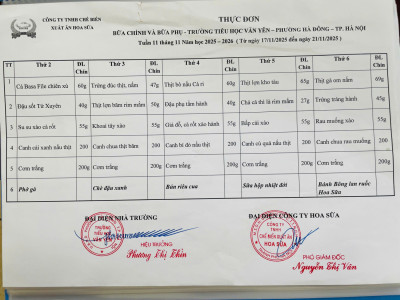 CÔNG TY TNHH CHẾ BIẾN
XUẤT ĂN HOA SỮA
THỰC ĐƠN
BỮA CHÍNH VÀ BỮA PHỤ - TRƯỜNG TIỂU HỌC VĂN YÊN – PHƯỜNG HÀ ĐÔNG – TP. HÀ NỘI
Tuần 11 tháng 11 Năm học 2025 – 2026 ( Từ ngày 17/11/2025 đến ngày 21/11/2025 )
TT Thứ 2 ĐL Chín Thứ 3 ĐL Chín Thứ 4 ĐL Chín Thứ 5 ĐL Chín Thứ 6 ĐL Chín
1 Cá Basa File chiên xù 60g Trứng đúc thịt, nấm 47g Thịt bò nấu Cà ri 60g Thịt lợn kho tàu 65g Thịt gà om nấm 69g
2 Đậu sốt Tứ Xuyên 40g Thịt lợn băm rim mắm 50g Đậu phụ tẩm hành 40g Chả cá thì là rim mắm 27g Trứng tráng hành 45g
3 Su su xào cà rốt 55g Khoai tây xào 55g Giá đỗ, cà rốt xào hành 55g Bắp cải xào 55g Rau muống xào 55g
4 Canh cải xanh nấu thịt 200 Canh chua thịt băm 200 Canh bí đỏ nấu thịt 200 Canh củ quả nấu thịt 200 Canh chua rau muống 200
5 Cơm trắng 200g Cơm trắng 200g Cơm trắng 200g Cơm trắng 200g Cơm trắng 200g
6 Phở gà Chè đậu xanh Bún riêu cua Sữa hộp nhiệt đới Bánh Bông lan ruốc Hoa Sữa
ĐẠI DIỆN NHÀ TRƯỜNG ĐẠI DIỆN CÔNG TY HOA SỮA
TRƯỜNG
TIỂU HỌC
VĂN YÊN
CÔNG TY
TNHH
CHẾ BIẾN XUẤT ĂN
HOA SỮA
HIỆU TRƯỞNG
Phương Thị Thìn
PHÓ GIÁM ĐỐC
Nguyễn Thị Vân